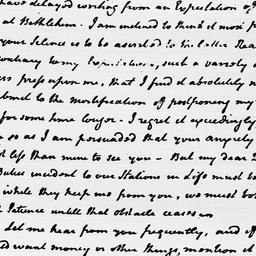 have delayed writing from an Expectation of
at Bethlehem. I am inclined to think it more
your Silence is to be ascribed to
contrary to my Expectations, such a variety
press upon me, that I find it absolutely
submit to the mortification of postponing my
for some time longer. I regret it exceedingly
so as I am persuaded that your anxiety
less than mine to see you — But my dear
Duties incident to our Stations in Life must
while they keep me from you, we must
Patience until that obstacle ceases
Let me hear from you frequently, and
want money or other things, mention it